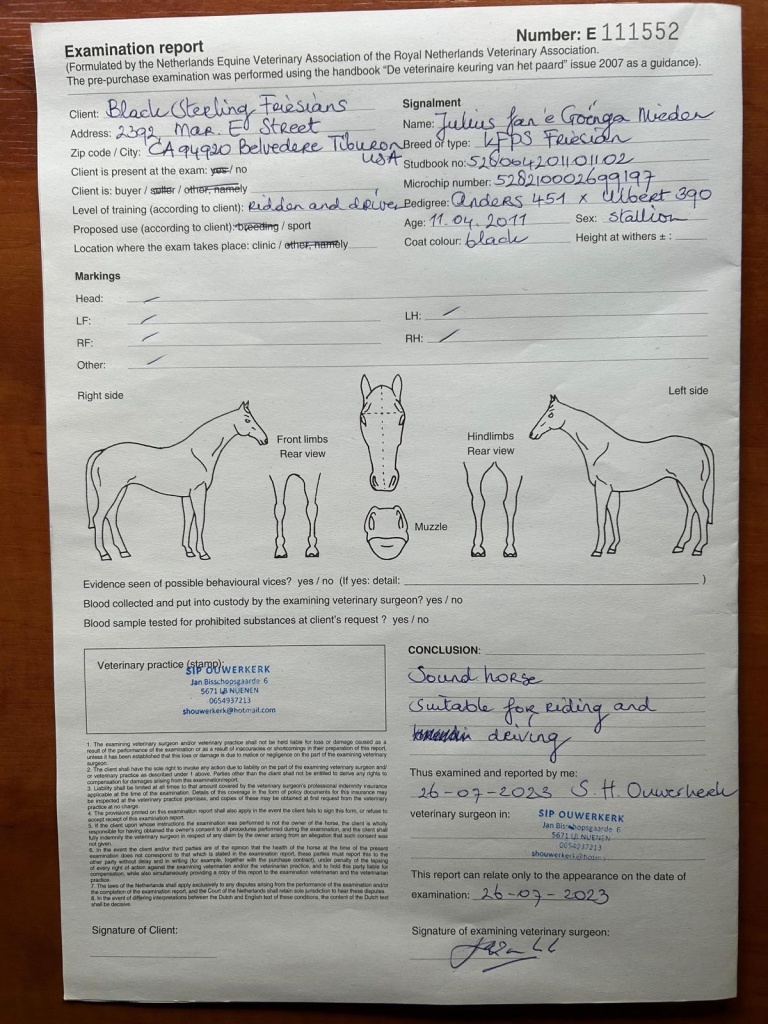 Examination report
Number: E 111552
(Formulated by the Netherlands Equine Veterinary Association of the Royal Netherlands Veterinary Association.
The pre-purchase examination was performed using the handbook "De veterinaire keuring van het paard" issue 2007 as a guidance).
Client: Black Sterling Friesians
Address: 2392 Mar. E Street
Zip code / City: CA 94920 Belvedere Tiburon USA
Client is present at the exam: yes / no
Client is: buyer / seller / other, namely
Level of training (according to client): Ridden and driven
Proposed use (according to client): breeding / sport
Location where the exam takes place: clinic / other, namely
Signalment
Name: Julius fan 'e Goënga Mieden
Breed or type: KFPS Friesian
Studbook no: 528006420110 1102
Microchip number: 528210002699197
Pedigree: Anders 451 x Ulbert 390
Age: 11.04.2011 Sex: stallion
Coat colour: black Height at withers ± :
Markings
Head:
LF: LH:
RF: RH:
Other:
Right side
Left side
Front limbs
Rear view
Hindlimbs
Rear view
Muzzle
Evidence seen of possible behavioural vices? yes / no (If yes: detail: )
Blood collected and put into custody by the examining veterinary surgeon? yes / no
Blood sample tested for prohibited substances at client's request ? yes / no
Veterinary practice (stamp):
SIP OUWERKERK
Jan Bisschopsgaarde 6
5671 LB NUENEN
0654937213
shouwerkerk@hotmail.com
1. The examining veterinary surgeon and/or veterinary practice shall not be held liable for loss or damage caused as a
result of the performance of the examination or as a result of inaccuracies or shortcomings in their preparation of this report,
unless it has been established that this loss or damage is due to malice or negligence on the part of the examining veterinary
surgeon.
2. The client shall have the sole right to invoke any action due to liability on the part of the examining veterinary surgeon and/
or veterinary practice as described under 1 above. Parties other than the client shall not be entitled to derive any rights to
compensation for damages arising from this examinationreport.
3. Liability shall be limited at all times to that amount covered by the veterinary surgeon's professional indemnity insurance
applicable at the time of the examination. Details of this coverage in the form of policy documents for this insurance may
be inspected at the veterinary practice premises, and copies of these may be obtained at first request from the veterinary
practice at no charge.
4. The provisions printed on this examination report shall also apply in the event the client fails to sign this form, or refuse to
accept receipt of this examination report.
5. If the client upon whose instructions the examination was performed is not the owner of the horse, the client is wholly
responsible for having obtained the owner's consent to all procedures performed during the examination, and the client shall
fully indemnify the veterinary surgeon in respect of any claim by the owner arising from an allegation that such consent was
not given.
6. In the event the client and/or third parties are of the opinion that the health of the horse at the time of the present
examination does not correspond to that which is stated in the examination report, these parties must report this to the
other party without delay and in writing (for example, together with the purchase contract), under penalty of the lapsing
of every right of action against the examining veterinarian and/or the veterinary practice, and to hold this party liable for
compensation, while also simultaneously providing a copy of this report to the examination veterinarian and the veterinarian
practice.
7. The laws of the Netherlands shall apply exclusively to any disputes arising from the performance of the examination and/or
the completion of the examination report, and the Court of the Netherlands shall retain sole jurisdiction to hear these disputes.
8. In the event of differing interpretations between the Dutch and English text of these conditions, the content of the Dutch text
shall be decisive.
Signature of Client:
CONCLUSION:
Sound horse
Suitable for riding and
driving
Thus examined and reported by me:
26-07-2023 S.H. Ouwerkerk
veterinary surgeon in:
SIP OUWERKERK
Jan Bisschopsgaarde 6
5671 LB NUENEN
0654937213
shouwerkerk@hotm
This report can relate only to the appearance on the date of
examination: 26-07-2023
Signature of examining veterinary surgeon: